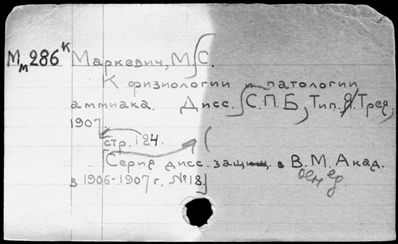 Мм 286к Маркевич, М. С.
К физиологии и патологии
аммиака. Дисс. С.П.Б., Тип. Я. Трей,
1907.
стр. 124.
(Серия дисс. защищ. в В. М. Акад.
в 1906-1907 г. № 18)